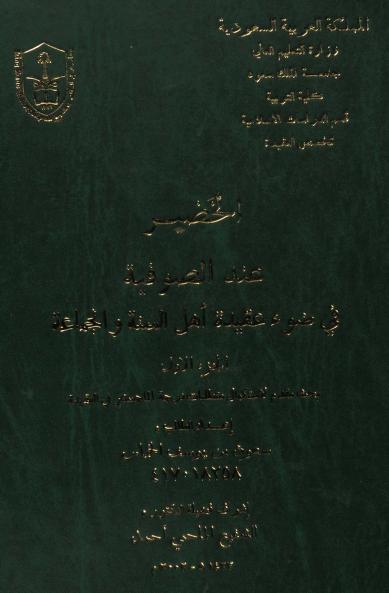 المملكة العربية السعودية
وزارة التعليم العالي
جامعة الملك سعود
كلية التربية
قسم الدراسات الاسلامية
تخصص العقيدة
الخضير
عند الصوفية
في ضوء عقيدة أهل السنة والجماعة
الجزء الأول
بحث مقدم لاستكمال متطلبات درجة الماجستير في العقيدة
إعداد الطالب :
بن يوسف
٤١٧٠١٨٢٥٨
إشراف فضيلة الدكتور :
أحمد